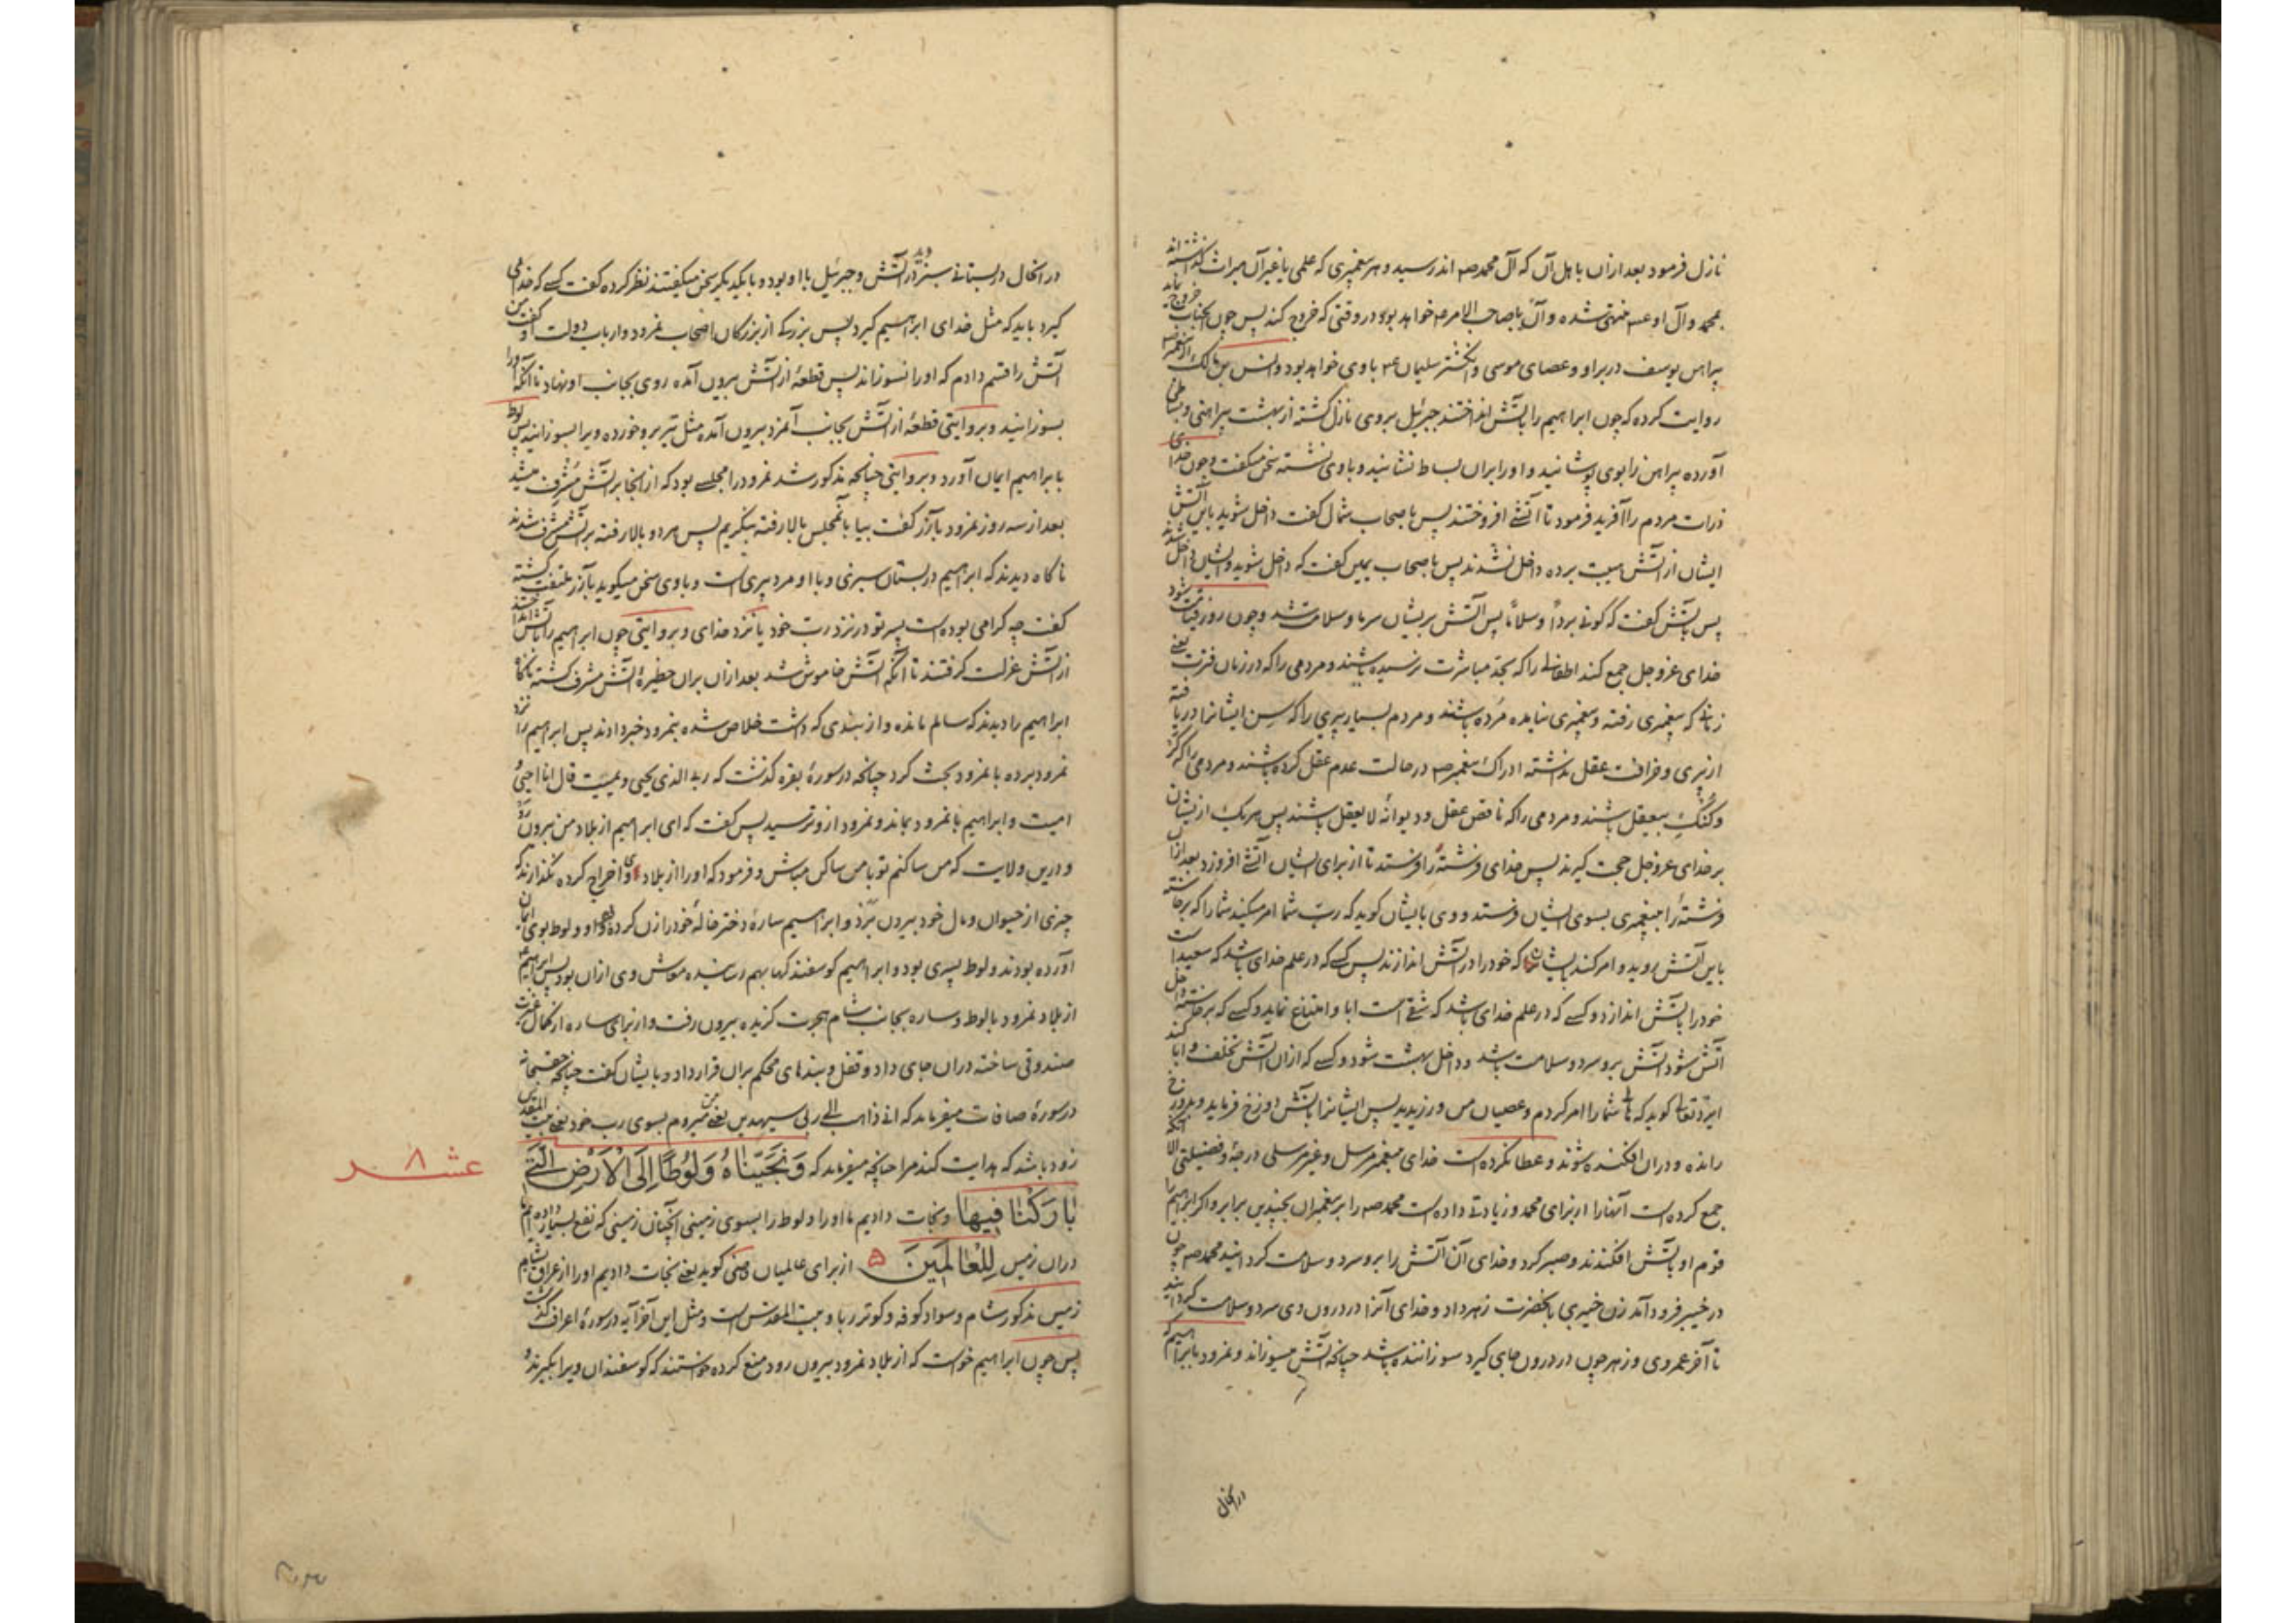 نازل فرمود بعد ازان باهل آن که آل محمدصه اند رسید و هر پیغمبری که علمی یا غیر آن میراث گذاشته اند
بمحمد وآل او عسه منتهی شده و آن با صاحب الامر عه خواهد بود در وقتی که خروج کند پس چون آنجناب خروج نماید
پیراهن یوسف در بر او و عصای موسی و انگشتر سلیمان عه با وی خواهد بود و انس بن مالک از پیغمبر صه
روایت کرده که چون ابراهیم را بآتش انداختند جبرئیل بروی نازل گشته از بهشت پیراهنی و بساطی
آورده پیراهن را بوی پوشانید و او را بران بساط نشانید و باوی نشسته سخن میگفت و چون خدای
ذرات مردم را آفرید فرمود تا آتشی افروختند پس باصحاب شمال گفت داخل شوید باین آتش
ایشان از آتش هیبت برده داخل نشدند پس باصحاب یمین گفت که داخل شوید و ایشان داخل شدند
پس بآتش گفت که کونی بردًا وسلامًا پس آتش بریشان سرد و سلامت شد و چون روز قیامت شود
خدای عز وجل جمع کند اطفالی را که بحد مباشرت نرسیده باشند و مردمی را که در زمان فترت یعنی
زمانی که پیغمبری رفته و پیغمبری نیامده مرده باشند و مردم بسیار پیری را که سن ایشانرا دریافته
از پیری و خرافت عقل نداشته ادراک پیغمبر صه در حالت عدم عقل کرده باشند و مردمی را که کر
و کنگ بیعقل باشند و مردمی را که ناقص عقل و دیوانه لا یعقل باشند پس هر یک از یشان
بر خدای عز وجل حجت گیرند پس خدای فرشتهٔ را فرستد تا از برای ایشان آتشی افروزد بعد ازان
فرشتهٔ را بپیغمبری بسوی ایشان فرستد و وی بایشان گوید که رب شما امر میکند شما را که برخاسته
باین آتش روید و امر کند ایشان که خود را در آتش اندازند پس کسی که در علم خدای باشد که سعید است
خود را بآتش اندازد و کسی که در علم خدای باشد که شقی است ابا و امتناع نماید و کسی که برخاسته داخل
آتش شود آتش برو سرد و سلامت باشد و داخل بهشت شود و کسی که ازان آتش تخلف و ابا کند
ایزد تعالی گوید که شما را امر کردم و عصیان من ورزیدید پس ایشانرا بآتش دوزخ فرماید و بدوزخ
رانده و دران افکنده شوند و عطا نکرده است خدای پیغمبر مرسل و غیر مرسلی درجهٔ و فضیلتی الا آنکه
جمع کرده است آنها را از برای محمد و زیادتی داده است محمدصه را بر پیغمبران بچندین برابر و اگر ابراهیم را
قوم او بآتش افکندند و صبر کرد و خدای آن آتش را برو سرد و سلامت گردانید محمد صه چون
در خیبر فرود آمد زن خیبری بآنحضرت زهر داد و خدای آنرا در درون وی سرد و سلامت گردانید
تا آخر عمر وی و زهر چون در درون جای گیرد سوزاننده باشد چنانکه آتش میسوزاند و نمرود بابراهیم که
در انحال
در انحال در بستانی سبز در آتش دید و جبرئیل با او بود و با یکدیگر سخن میگفتند نظر کرده گفت کسی که خدای
گیرد باید که مثل خدای ابراهیم گیرد پس بزرگی از بزرگان اصحاب نمرود و ارباب دولت او گفت من
آتش را قسم دادم که او را نسوزاند پس قطعهٔ از آتش بیرون آمده روی بجانب او نهاد تا آنکه او را
بسوزانید و بروایتی قطعهٔ از آتش بجانب آنمرد بیرون آمده مثل تیر برو خورده ویرا بسوزانید پس لوط
بابراهیم ایمان آورد و بروایتی چنانچه مذکور شد نمرود را مجلسی بود که از انجا بر آتش مشرف میشد
بعد از سه روز نمرود بآزر گفت بیا بآنمجلس بالا رفته بنگریم پس هر دو بالا رفته بر آتش مشرف شدند
ناگاه دیدند که ابراهیم در بستان سبزی و با او مرد پیری است و باوی سخن میگوید بآزر ملتفت گشته
گفت چه گرامی بوده است پسر تو در نزد رب خود یا نزد خدای و بروایتی چون ابراهیم را بآتش انداختند
از آتش عزلت گرفتند تا آنکه آتش خاموش شد بعد ازان بران حظیرهٔ آتش مشرف گشته ناگاه
ابراهیم را دیدند که سالم مانده و از بندی که داشت خلاص شده بنمرود خبر دادند پس ابراهیم را نزد
نمرود برده با نمرود بحث کرد چنانچه در سورهٔ بقره گذشت که ربی الذی یحیی ویمیت قال انا احیی و
امیت و ابراهیم با نمرود بماند و نمرود ازو ترسید پس گفت که ای ابراهیم از بلاد من بیرون رو
و درین ولایت که من ساکنم تو با من ساکن مباش و فرمود که او را از بلاد وی اخراج کرده نگذارند که
چیزی از حیوان و مال خود بیرون برد و ابراهیم سارهٔ دختر خالهٔ خود را زن کرده بود و او و لوط بوی ایمان
آورده بودند و لوط پسری بود و ابراهیم گوسفند کها بهم رسانیده معاش وی ازان بود پس ابراهیم عه
از بلاد نمرود با لوط و ساره بجانب شام هجرت گزیده بیرون رفت و از برای ساره از کمال غیرت
صندوقی ساخته دران جای داد و قفل و بندهای محکم بران قرار داد و بایشان گفت چنانچه حقسبحانه
در سورهٔ صافات میفرماید که انی ذاهب الی ربی سیهدین یعنی من میروم بسوی رب خود یعنی بیت المقدس
زود باشد که هدایت کند مرا چنانچه میفرماید که وَنَجَّیْنَاهُ وَلُوطًا اِلَی الْاَرْضِ الَّتِی
عشـ ۸ ـر
بَارَکْنَا فِیهَا و نجات دادیم ما او را و لوط را بسوی زمینی آنچنان زمینی که نفع بسیار داده ایم ما
دران زمین لِلْعَالَمِینَ ۵ از برای عالمیان گوید یعنی نجات دادیم او را از عراق بشام
زمین مذکور شام و سواد کوفه و کوثر ربا و بیت المقدس است و مثل این آخر آیه در سورهٔ اعراف گذشت
پس چون ابراهیم خواست که از بلاد نمرود بیرون رود منع کرده خواستند که گوسفندان ویرا بگیرند و